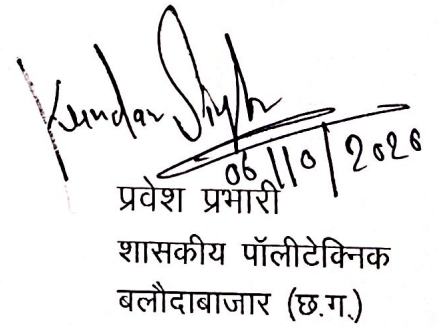 Kundan Singh
06/10/2020
प्रवेश प्रभारी
शासकीय पॉलीटेक्निक
बलौदाबाजार (छ.ग.)